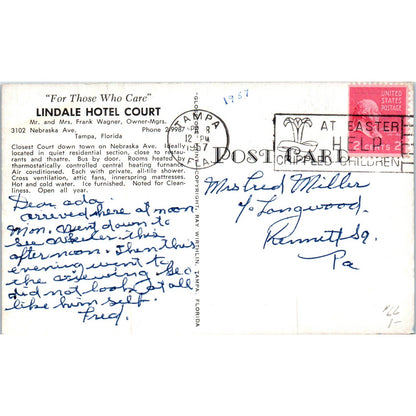 "For Those Who Care"
LINDALE HOTEL COURT
Mr. and Mrs. Frank Wagner, Owner-Mgrs.
3102 Nebraska Ave. Phone 2-9987
Tampa, Florida
Closest Court down town on Nebraska Ave. Ideally
located in quiet residential section, close to restau-
rants and theatre. Bus by door. Rooms heated by
thermostatically controlled central heating furnance
Air conditioned. Each with private, all-tile shower.
Cross ventilation, fans, innerspring mattresses.
Hot and cold water. Ice furnished. Noted for Clean-
liness. Open all year.
Dear ada
arrived here at noon
Mon. Went down to
see this
after noon. Then this
evening went to
the viewing Geo
did not look at all
like him self.
Fred.
COPYRIGHT RAY WIRTHLIN, TAMPA, FLORIDA
1957
TAMPA
APR 8
12 PM
1957
FLA.
AT EASTER
HELP
CRIPPLED CHILDREN
UNITED STATES
POSTAGE
2 CENTS 2
POST CARD
Mrs Fred Miller
c/o Longwood
Kennett Sq
Pa